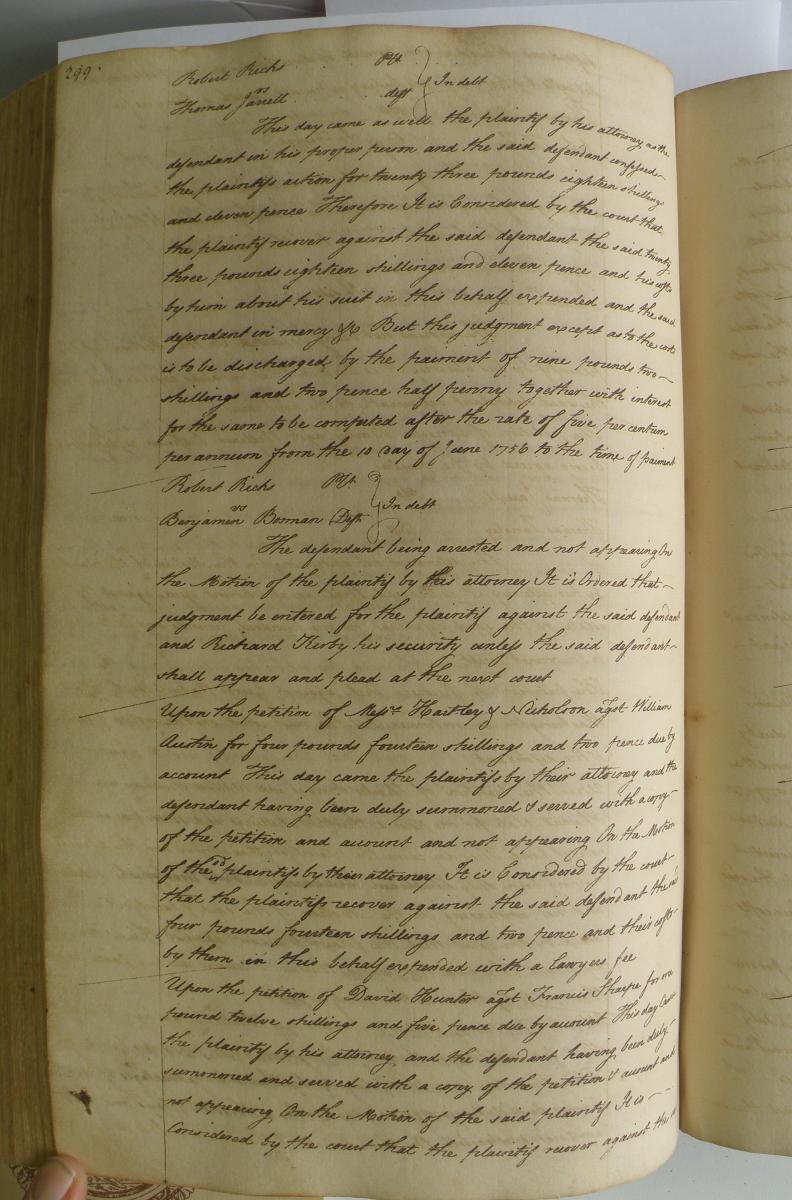 299.
Robert Richs Plt
vs } In debt
Thomas Jarrell deft
This day came as well the plaintif by his attorney as the
defendant in his proper person and the said defendant confessed
the plaintifs action for twenty three pounds eighteen shillings
and eleven pence Therefore It is Considered by the court that
the plaintif recover against the said defendant the said twenty
three pounds eighteen shillings and eleven pence and his costs
by him about his suit in this behalf expended and the said
defendant in mercy &c But this judgment except as to the costs
is to be discharged by the paiment of nine pounds two
shillings and two pence half penny together with interest
for the same to be computed after the rate of five per centum
per annum from the 10 Day of June 1756 to the time of paiment
Robert Richs Plt.
vs } In debt
Benjamin Bowman Deft
The defendant being arrested and not appearing On
the Motion of the plaintif by his attorney It is Ordered that
judgment be entered for the plaintif against the said defendant
and Richard Kirby his security unless the said defendant
shall appear and plead at the next court
Upon the petition of Messrs Hartley & Nicholson agst William
Austin for four pounds fourteen shillings and two pence due by
account This day came the plaintifs by their attorney and the
defendant having been duly summoned & served with a copy
of the petition and account and not appearing On the Motion
of the sd plaintifs by their attorney It is Considered by the court
that the plaintifs recover against the said defendant the said
four pounds fourteen shillings and two pence and their costs
by them in this behalf expended with a Lawyers fee
Upon the petition of David Hunter agst Francis Sharpe for one
pound twelve shillings and five pence due by account This day came
the plaintif by his attorney and the defendant having been duly
summoned and served with a copy of the petition & account and
not appearing On the Motion of the said plaintif It is
Considered by the court that the plaintif recover against the